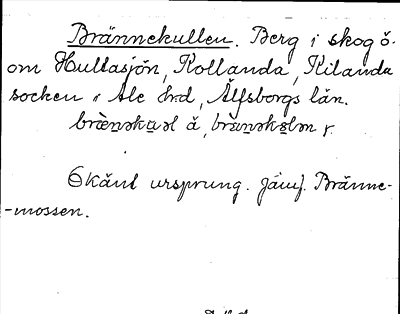 Brännekullen. Berg i skog ö.
om Hultasjön, Kollanda, Kilanda
socken i Ale hrd, Älfsborgs län.
Okänt ursprung. Jämf. Bränne-
-mossen.